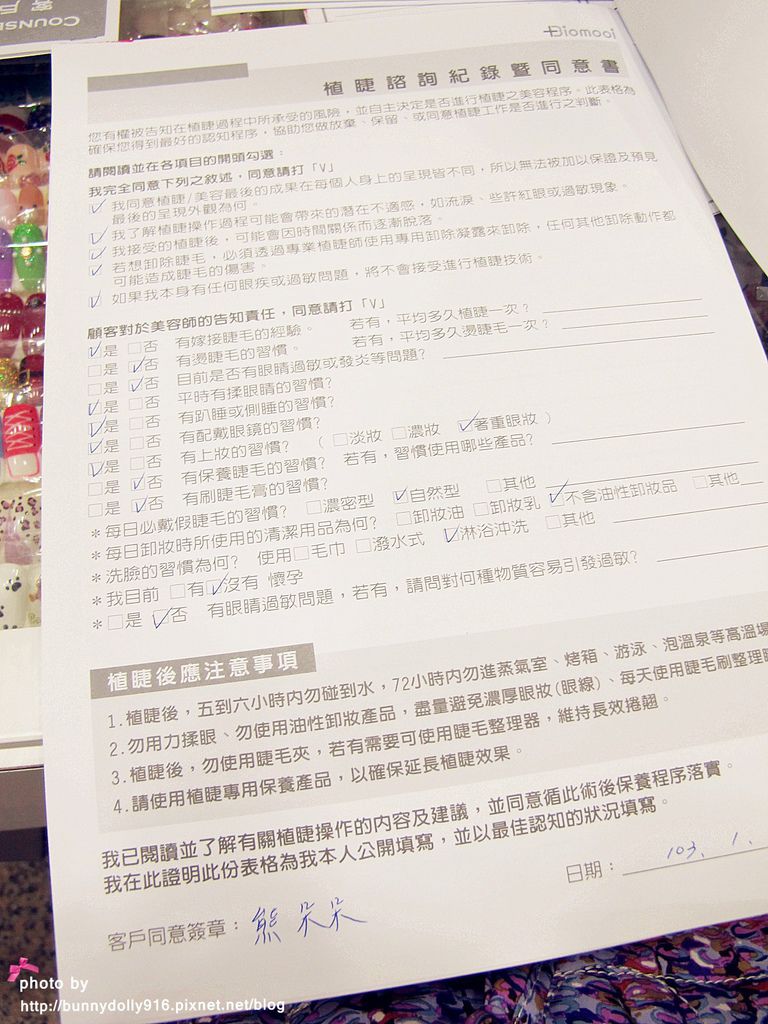 COUNSE
客戶
Biomooi
植睫諮詢紀錄暨同意書
您有權被告知在植睫過程中所承受的風險，並自主決定是否進行植睫之美容程序。此表格為
確保您得到最好的認知程序，協助您做放棄、保留、或同意植睫工作是否進行之判斷。
請閱讀並在各項目的開頭勾選：
我完全同意下列之敘述，同意請打「V」
☑ 我同意植睫/美容最後的成果在每個人身上的呈現皆不同，所以無法被加以保證及預見
最後的呈現外觀為何。
☑ 我了解植睫操作過程可能會帶來的潛在不適感，如流淚、些許紅眼或過敏現象。
☑ 我接受的植睫後，可能會因時間關係而逐漸脫落。
☑ 若想卸除睫毛，必須透過專業植睫師使用專用卸除凝露來卸除，任何其他卸除動作都
可能造成睫毛的傷害。
☑ 如果我本身有任何眼疾或過敏問題，將不會接受進行植睫技術。
顧客對於美容師的告知責任，同意請打「V」
☑是 □否 有嫁接睫毛的經驗。 若有，平均多久植睫一次？
□是 ☑否 有燙睫毛的習慣。 若有，平均多久燙睫毛一次？
□是 ☑否 目前是否有眼睛過敏或發炎等問題？
☑是 □否 平時有揉眼睛的習慣？
☑是 □否 有趴睡或側睡的習慣？
☑是 □否 有配戴眼鏡的習慣？
☑是 □否 有上妝的習慣？ （ □淡妝 □濃妝 ☑著重眼妝 ）
□是 ☑否 有保養睫毛的習慣？ 若有，習慣使用哪些產品？
□是 ☑否 有刷睫毛膏的習慣？
＊每日必戴假睫毛的習慣？ □濃密型 ☑自然型 □其他
＊每日卸妝時所使用的清潔用品為何？ □卸妝油 □卸妝乳 ☑不含油性卸妝品 □其他
＊洗臉的習慣為何？ 使用□毛巾 □潑水式 ☑淋浴沖洗 □其他
＊我目前 □有☑沒有 懷孕
＊□是 ☑否 有眼睛過敏問題，若有，請問對何種物質容易引發過敏？
植睫後應注意事項
1.植睫後，五到六小時內勿碰到水，72小時內勿進蒸氣室、烤箱、游泳、泡溫泉等高溫場
2.勿用力揉眼、勿使用油性卸妝產品，盡量避免濃厚眼妝(眼線)、每天使用睫毛刷整理睫
3.植睫後，勿使用睫毛夾，若有需要可使用睫毛整理器，維持長效捲翹。
4.請使用植睫專用保養產品，以確保延長植睫效果。
我已閱讀並了解有關植睫操作的內容及建議，並同意循此術後保養程序落實。
我在此證明此份表格為我本人公開填寫，並以最佳認知的狀況填寫。
日期：103. 1.
客戶同意簽章：熊 呆呆
photo by
http://bunnydolly916.pixnet.net/blog